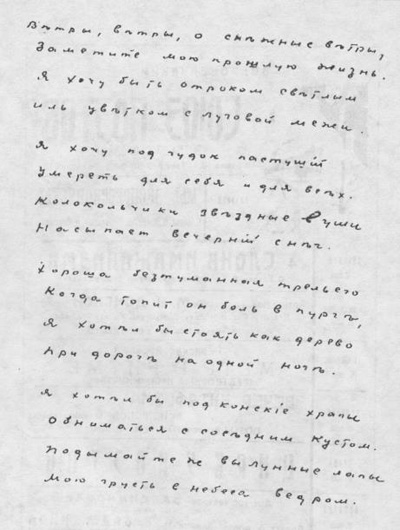 Вѣтры, вѣтры, о снѣжные вѣтры,
Заметите мою прошлую жизнь.
Я хочу быть отроком свѣтлим
иль цвѣтком с луговой межи.
Я хочу под гудок пастушій
Умереть для себя и для всѣх.
Колокольчики звѣздные в уши
Насыпает вечерній снѣг.
Хороша безтуманная трель его
Когда топит он боль в пургѣ,
Я хотѣл бы стоять как дерево
При дорогѣ на одной ногѣ.
Я хотѣл бы под конскіе храпы
Обниматься с сосѣдним кустом.
Подымайте ж вы лунные лапы
Мою грусть в небеса ведром.